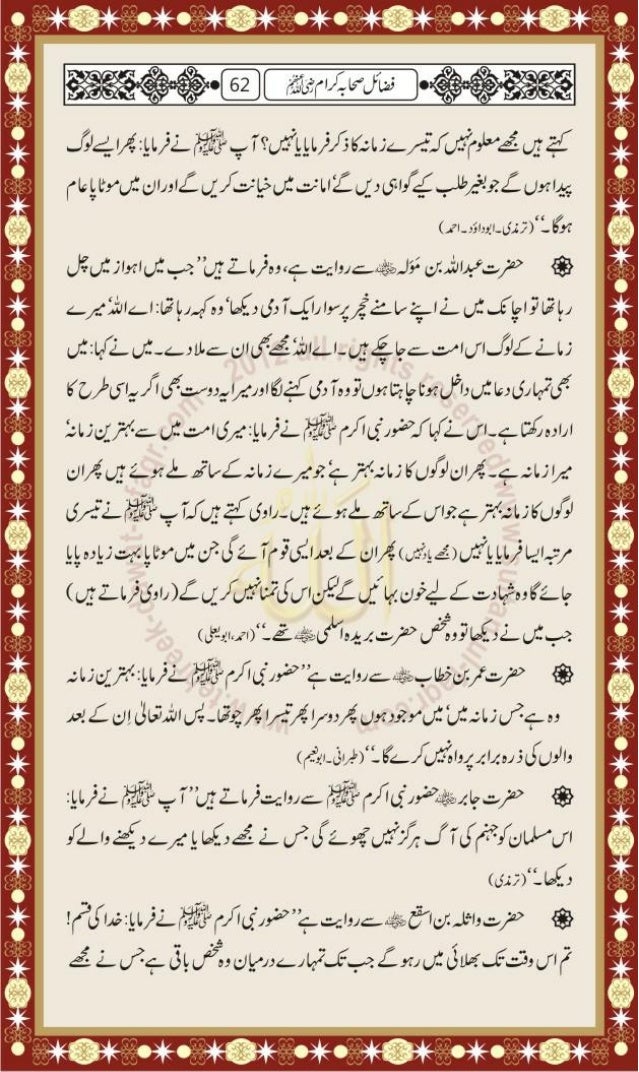 فضائل صحابہ کرام رضی اللہ عنہم
62
کہتے ہیں مجھے معلوم نہیں کہ تیسرے زمانہ کا ذکر فرمایا یا نہیں؟ آپ ﷺ نے فرمایا: پھر ایسے لوگ
پیدا ہوں گے جو بغیر طلب کیے گواہی دیں گے‘ امانت میں خیانت کریں گے اور ان میں موٹاپا عام
ہوگا۔‘‘ (ترمذی۔ابوداؤد۔احمد)
حضرت عبداللہ بن مَوَلہ رضی اللہ عنہ سے روایت ہے، وہ فرماتے ہیں’’ جب میں اہواز میں چل
رہا تھا تو اچانک میں نے اپنے سامنے خچر پر سوار ایک آدمی دیکھا‘ وہ کہہ رہا تھا: اے اللہ‘ میرے
زمانے کے لوگ اس امت سے جاچکے ہیں۔ اے اللہ‘ مجھے بھی ان سے ملا دے۔ میں نے کہا: میں
بھی تمہاری دعا میں داخل ہونا چاہتا ہوں تو وہ آدمی کہنے لگا اور میرا یہ دوست بھی اگر یہ اسی طرح کا
ارادہ رکھتا ہے۔ اس نے کہا کہ حضور نبی اکرم ﷺ نے فرمایا: میری امت میں سے بہترین زمانہ‘
میرا زمانہ ہے۔ پھر ان لوگوں کا زمانہ بہتر ہے‘ جو میرے زمانہ کے ساتھ ملے ہوئے ہیں پھر ان
لوگوں کا زمانہ بہتر ہے جو اس کے ساتھ ملے ہوئے ہیں۔ راوی کہتے ہیں کہ آپ ﷺ نے تیسری
مرتبہ ایسا فرمایا یا نہیں (مجھے یاد نہیں) پھر ان کے بعد ایسی قوم آئے گی جن میں موٹاپا بہت زیادہ پایا
جائے گا وہ شہادت کے لیے خون بہائیں گے لیکن اس کی تمنا نہیں کریں گے (راوی فرماتے ہیں)
جب میں نے دیکھا تو وہ شخص حضرت بریدہ اسلمی رضی اللہ عنہ تھے۔‘‘ (احمد، ابویعلی)
حضرت عمر بن خطاب رضی اللہ عنہ سے روایت ہے’’ حضور نبی اکرم ﷺ نے فرمایا: بہترین زمانہ
وہ ہے جس زمانہ میں‘ میں موجود ہوں پھر دوسرا پھر تیسرا پھر چوتھا۔ پس اللہ تعالیٰ اِن کے بعد
والوں کی ذرہ برابر پرواہ نہیں کرے گا۔‘‘ (طبرانی۔ابونعیم)
حضرت جابر رضی اللہ عنہ حضور نبی اکرم ﷺ سے روایت فرماتے ہیں’’ آپ ﷺ نے فرمایا:
اس مسلمان کو جہنم کی آگ ہرگز نہیں چھوئے گی جس نے مجھے دیکھا یا میرے دیکھنے والے کو
دیکھا۔‘‘ (ترمذی)
حضرت واثلہ بن اسقع رضی اللہ عنہ سے روایت ہے’’ حضور نبی اکرم ﷺ نے فرمایا: خدا کی قسم!
تم اس وقت تک بھلائی میں رہوگے جب تک تمہارے درمیان وہ شخص باقی ہے جس نے مجھے
اللہ